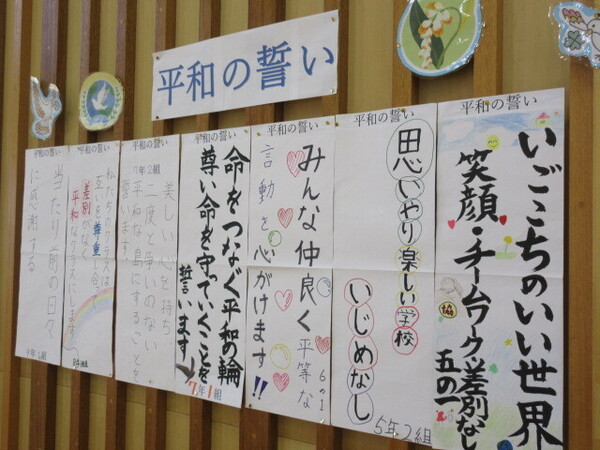 平和の誓い
平和の誓い
いごこちのいい世界
笑顔・チームワーク・差別なし
五の一
協
平和の誓い
思いやり楽しい学校
いじめなし
5年2組
平和の誓い
みんな仲良く平等な
言動を心がけます!!
6の1
平和の誓い
命をつなぐ平和の輪
尊い命を守っていくことを
誓います
7年1組
平和の誓い
7年2組
美しい心を持ち
二度と争いのない
平和な島にすることを
誓います。
平和の誓い
私たちのクラスは
互いを尊重し合い
差別がなく
平和なクラスにします
平和の誓い
当たり前の日々
に感謝する